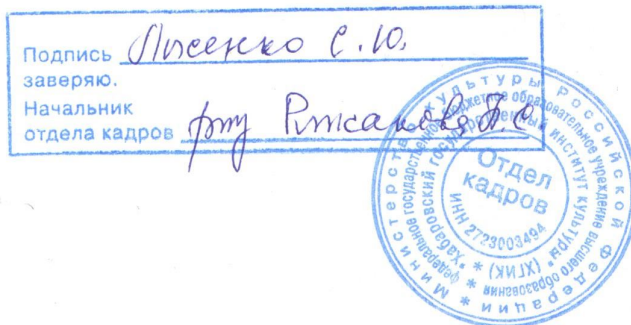 Подпись Лысенко С.Ю.
заверяю.
Начальник
отдела кадров
Министерство культуры Российской Федерации
федеральное государственное бюджетное образовательное учреждение высшего образования
"Хабаровский государственный институт культуры" (ХГИК)
ИНН 2723003494
Отдел
кадров